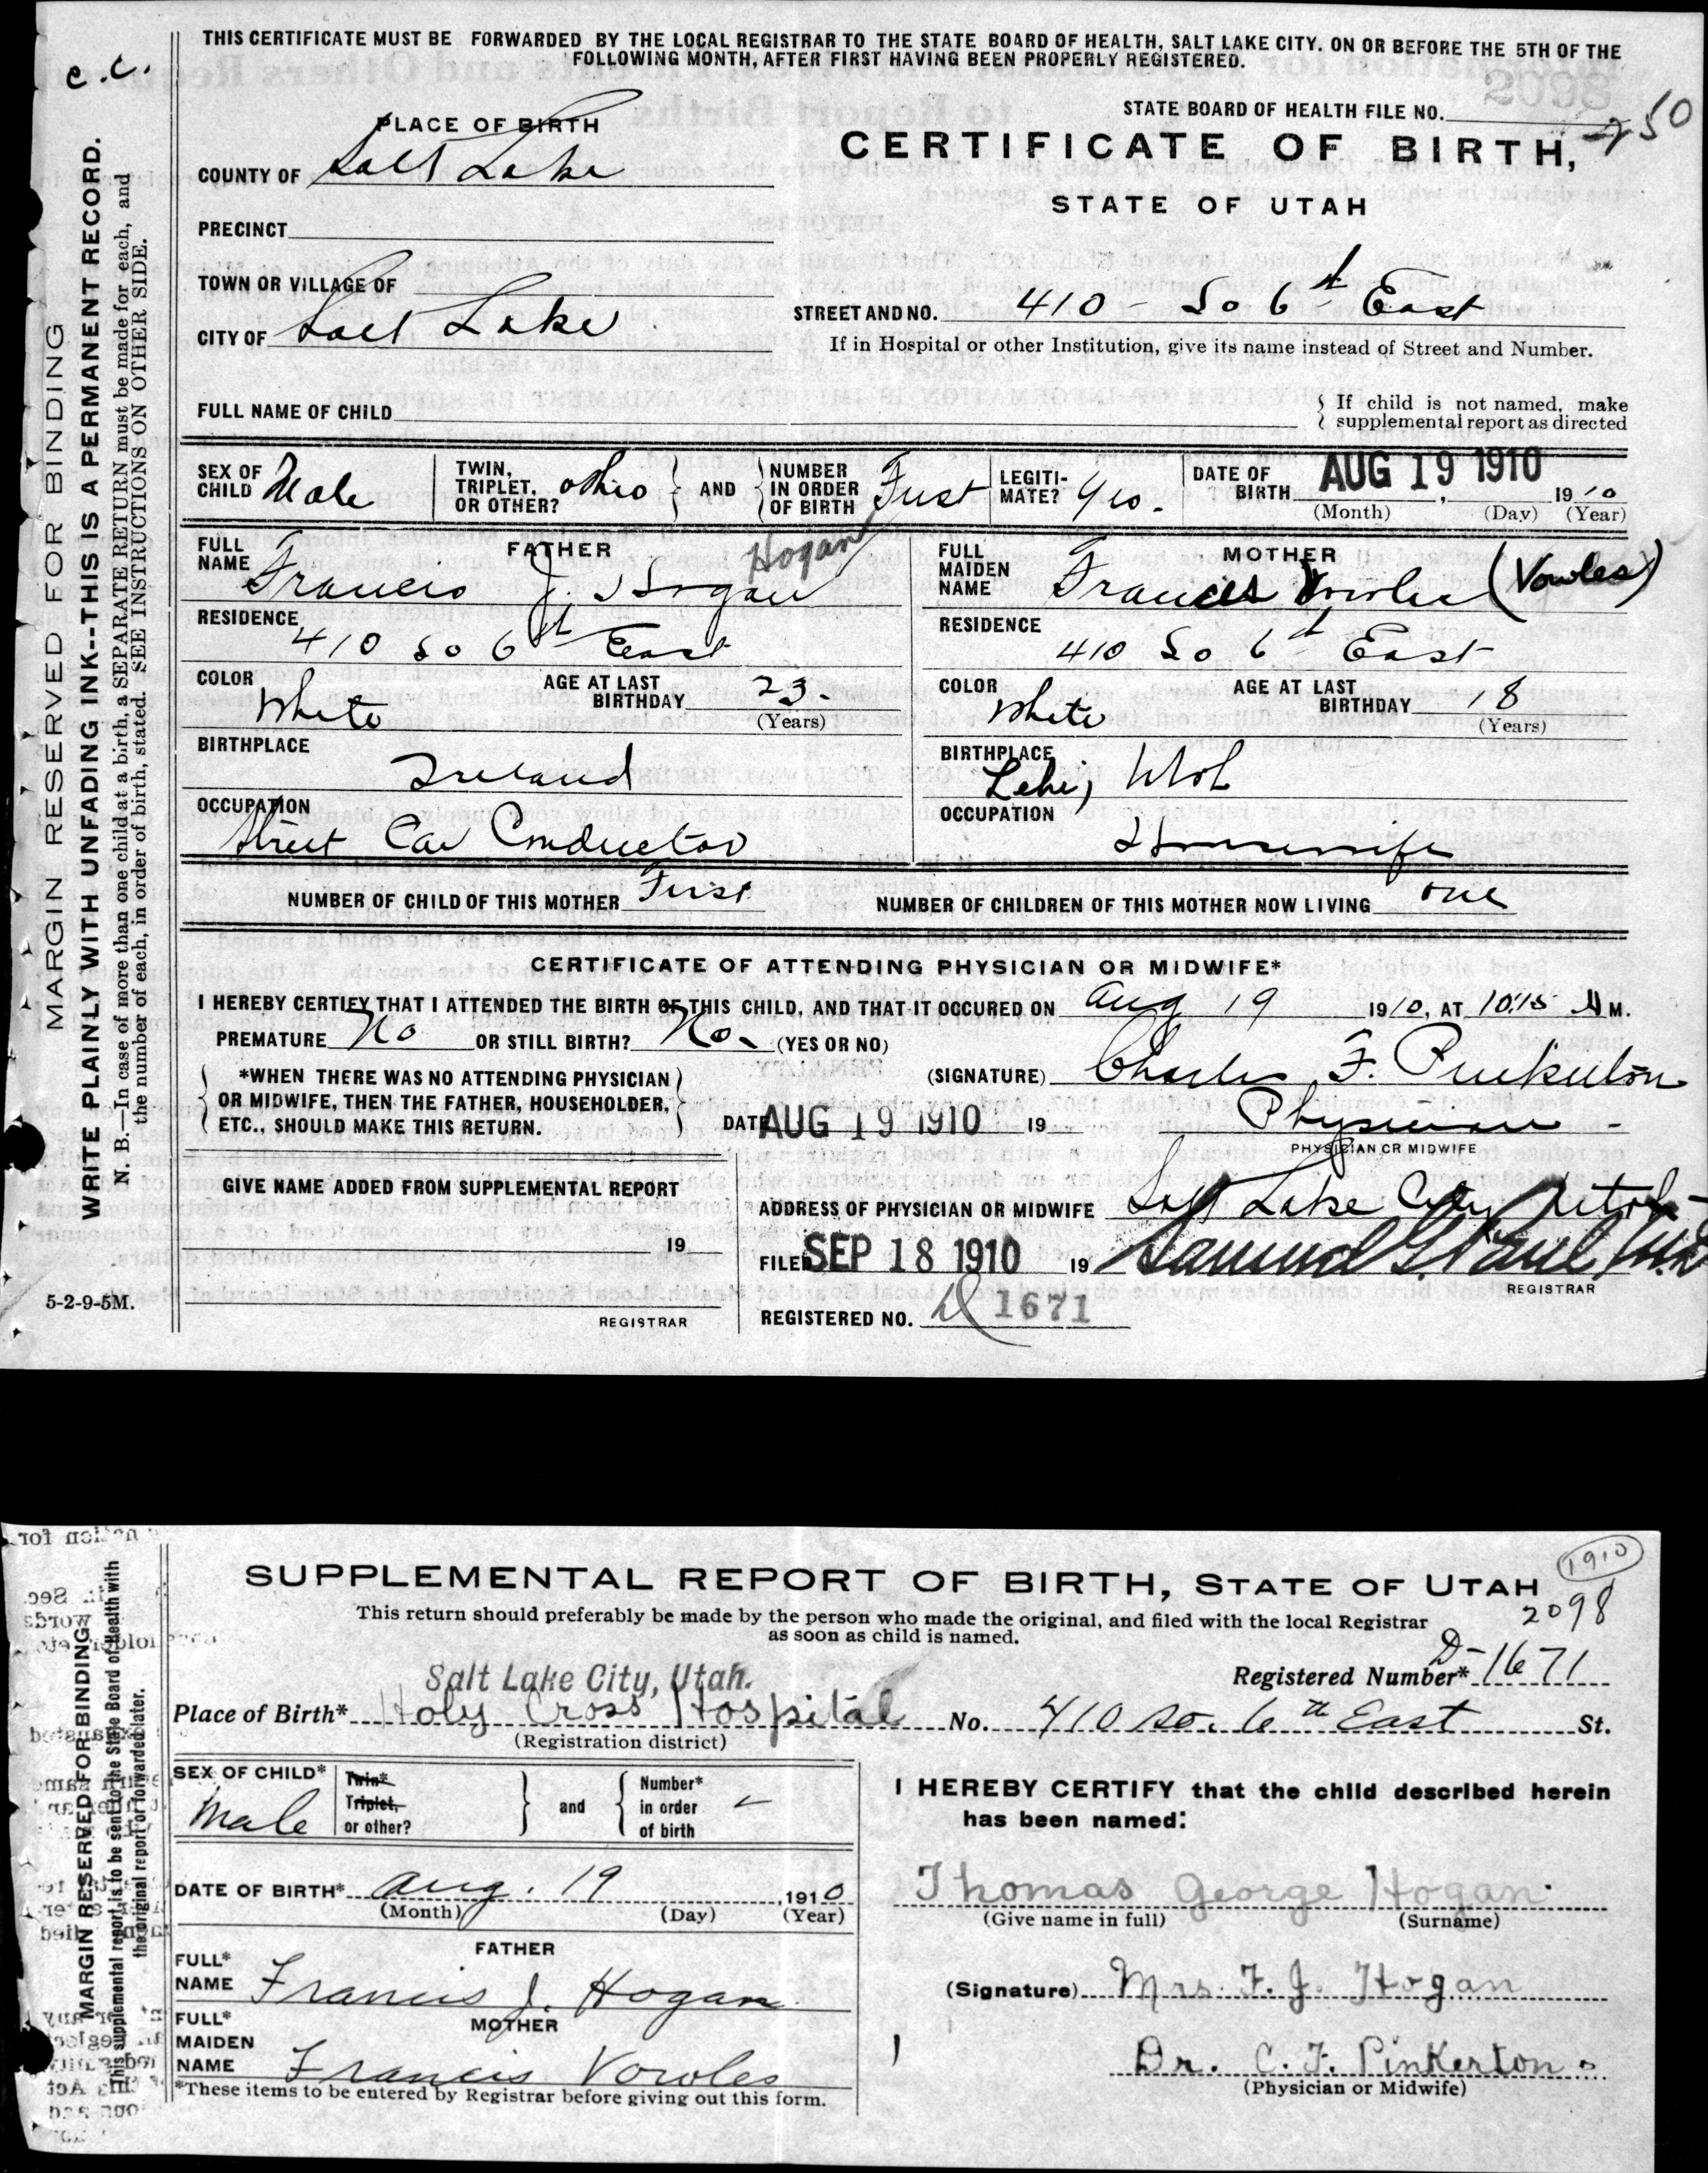 THIS CERTIFICATE MUST BE FORWARDED BY THE LOCAL REGISTRAR TO THE STATE BOARD OF HEALTH, SALT LAKE CITY. ON OR BEFORE THE 5TH OF THE
FOLLOWING MONTH, AFTER FIRST HAVING BEEN PROPERLY REGISTERED.
c.c.
MARGIN RESERVED FOR BINDING
WRITE PLAINLY WITH UNFADING INK--THIS IS A PERMANENT RECORD.
N. B.—In case of more than one child at a birth, a SEPARATE RETURN must be made for each, and
the number of each, in order of birth, stated. SEE INSTRUCTIONS ON OTHER SIDE.
5-2-9-5M.
PLACE OF BIRTH
COUNTY OF Salt Lake
PRECINCT
TOWN OR VILLAGE OF
CITY OF Salt Lake
STATE BOARD OF HEALTH FILE NO.
CERTIFICATE OF BIRTH,
STATE OF UTAH
STREET AND NO. 410 - So 6th East
If in Hospital or other Institution, give its name instead of Street and Number.
FULL NAME OF CHILD
If child is not named, make
supplemental report as directed
SEX OF CHILD Male
TWIN, TRIPLET, OR OTHER?
AND
NUMBER IN ORDER OF BIRTH First
LEGITIMATE? Yes.
DATE OF BIRTH AUG 19 1910 1910
(Month) (Day) (Year)
FATHER
Hogan
FULL NAME Francis J. Hogan
RESIDENCE
410 So 6th East
COLOR White
AGE AT LAST BIRTHDAY 23.
(Years)
BIRTHPLACE
Ireland
OCCUPATION
Street Car Conductor
MOTHER
FULL MAIDEN NAME Frances Vowles (Vowles)
RESIDENCE
410 So 6th East
COLOR White
AGE AT LAST BIRTHDAY 18
(Years)
BIRTHPLACE
Lehi, Utah
OCCUPATION
Housewife
NUMBER OF CHILD OF THIS MOTHER First
NUMBER OF CHILDREN OF THIS MOTHER NOW LIVING one
CERTIFICATE OF ATTENDING PHYSICIAN OR MIDWIFE*
I HEREBY CERTIFY THAT I ATTENDED THE BIRTH OF THIS CHILD, AND THAT IT OCCURED ON Aug 19 1910, AT 10:15 M.
PREMATURE No OR STILL BIRTH? No. (YES OR NO)
*WHEN THERE WAS NO ATTENDING PHYSICIAN
OR MIDWIFE, THEN THE FATHER, HOUSEHOLDER,
ETC., SHOULD MAKE THIS RETURN.
(SIGNATURE) Charles F. Pinkerton
DATE AUG 19 1910 19
Physician
PHYSICIAN OR MIDWIFE
GIVE NAME ADDED FROM SUPPLEMENTAL REPORT
19
REGISTRAR
ADDRESS OF PHYSICIAN OR MIDWIFE Salt Lake City Utah
FILED SEP 18 1910 19 Samuel G. Paul M.D.
REGISTRAR
REGISTERED NO. D 1671
MARGIN RESERVED FOR BINDING
This supplemental report is to be sent to the State Board of Health with
the original report or forwarded later.
1910
SUPPLEMENTAL REPORT OF BIRTH, STATE OF UTAH
2098
This return should preferably be made by the person who made the original, and filed with the local Registrar
as soon as child is named.
Registered Number* D-1671
Salt Lake City, Utah.
Place of Birth* Holy Cross Hospital No. 410 So. 6th East St.
(Registration district)
SEX OF CHILD* Male
Twin* Triplet, or other?
and
Number* in order of birth
DATE OF BIRTH* Aug. 19 1910
(Month) (Day) (Year)
FATHER
FULL* NAME Francis J. Hogan
MOTHER
FULL* MAIDEN NAME Francis Vowles
*These items to be entered by Registrar before giving out this form.
I HEREBY CERTIFY that the child described herein
has been named:
Thomas George Hogan.
(Give name in full) (Surname)
(Signature) Mrs. F. J. Hogan
Dr. C. F. Pinkerton.
(Physician or Midwife)